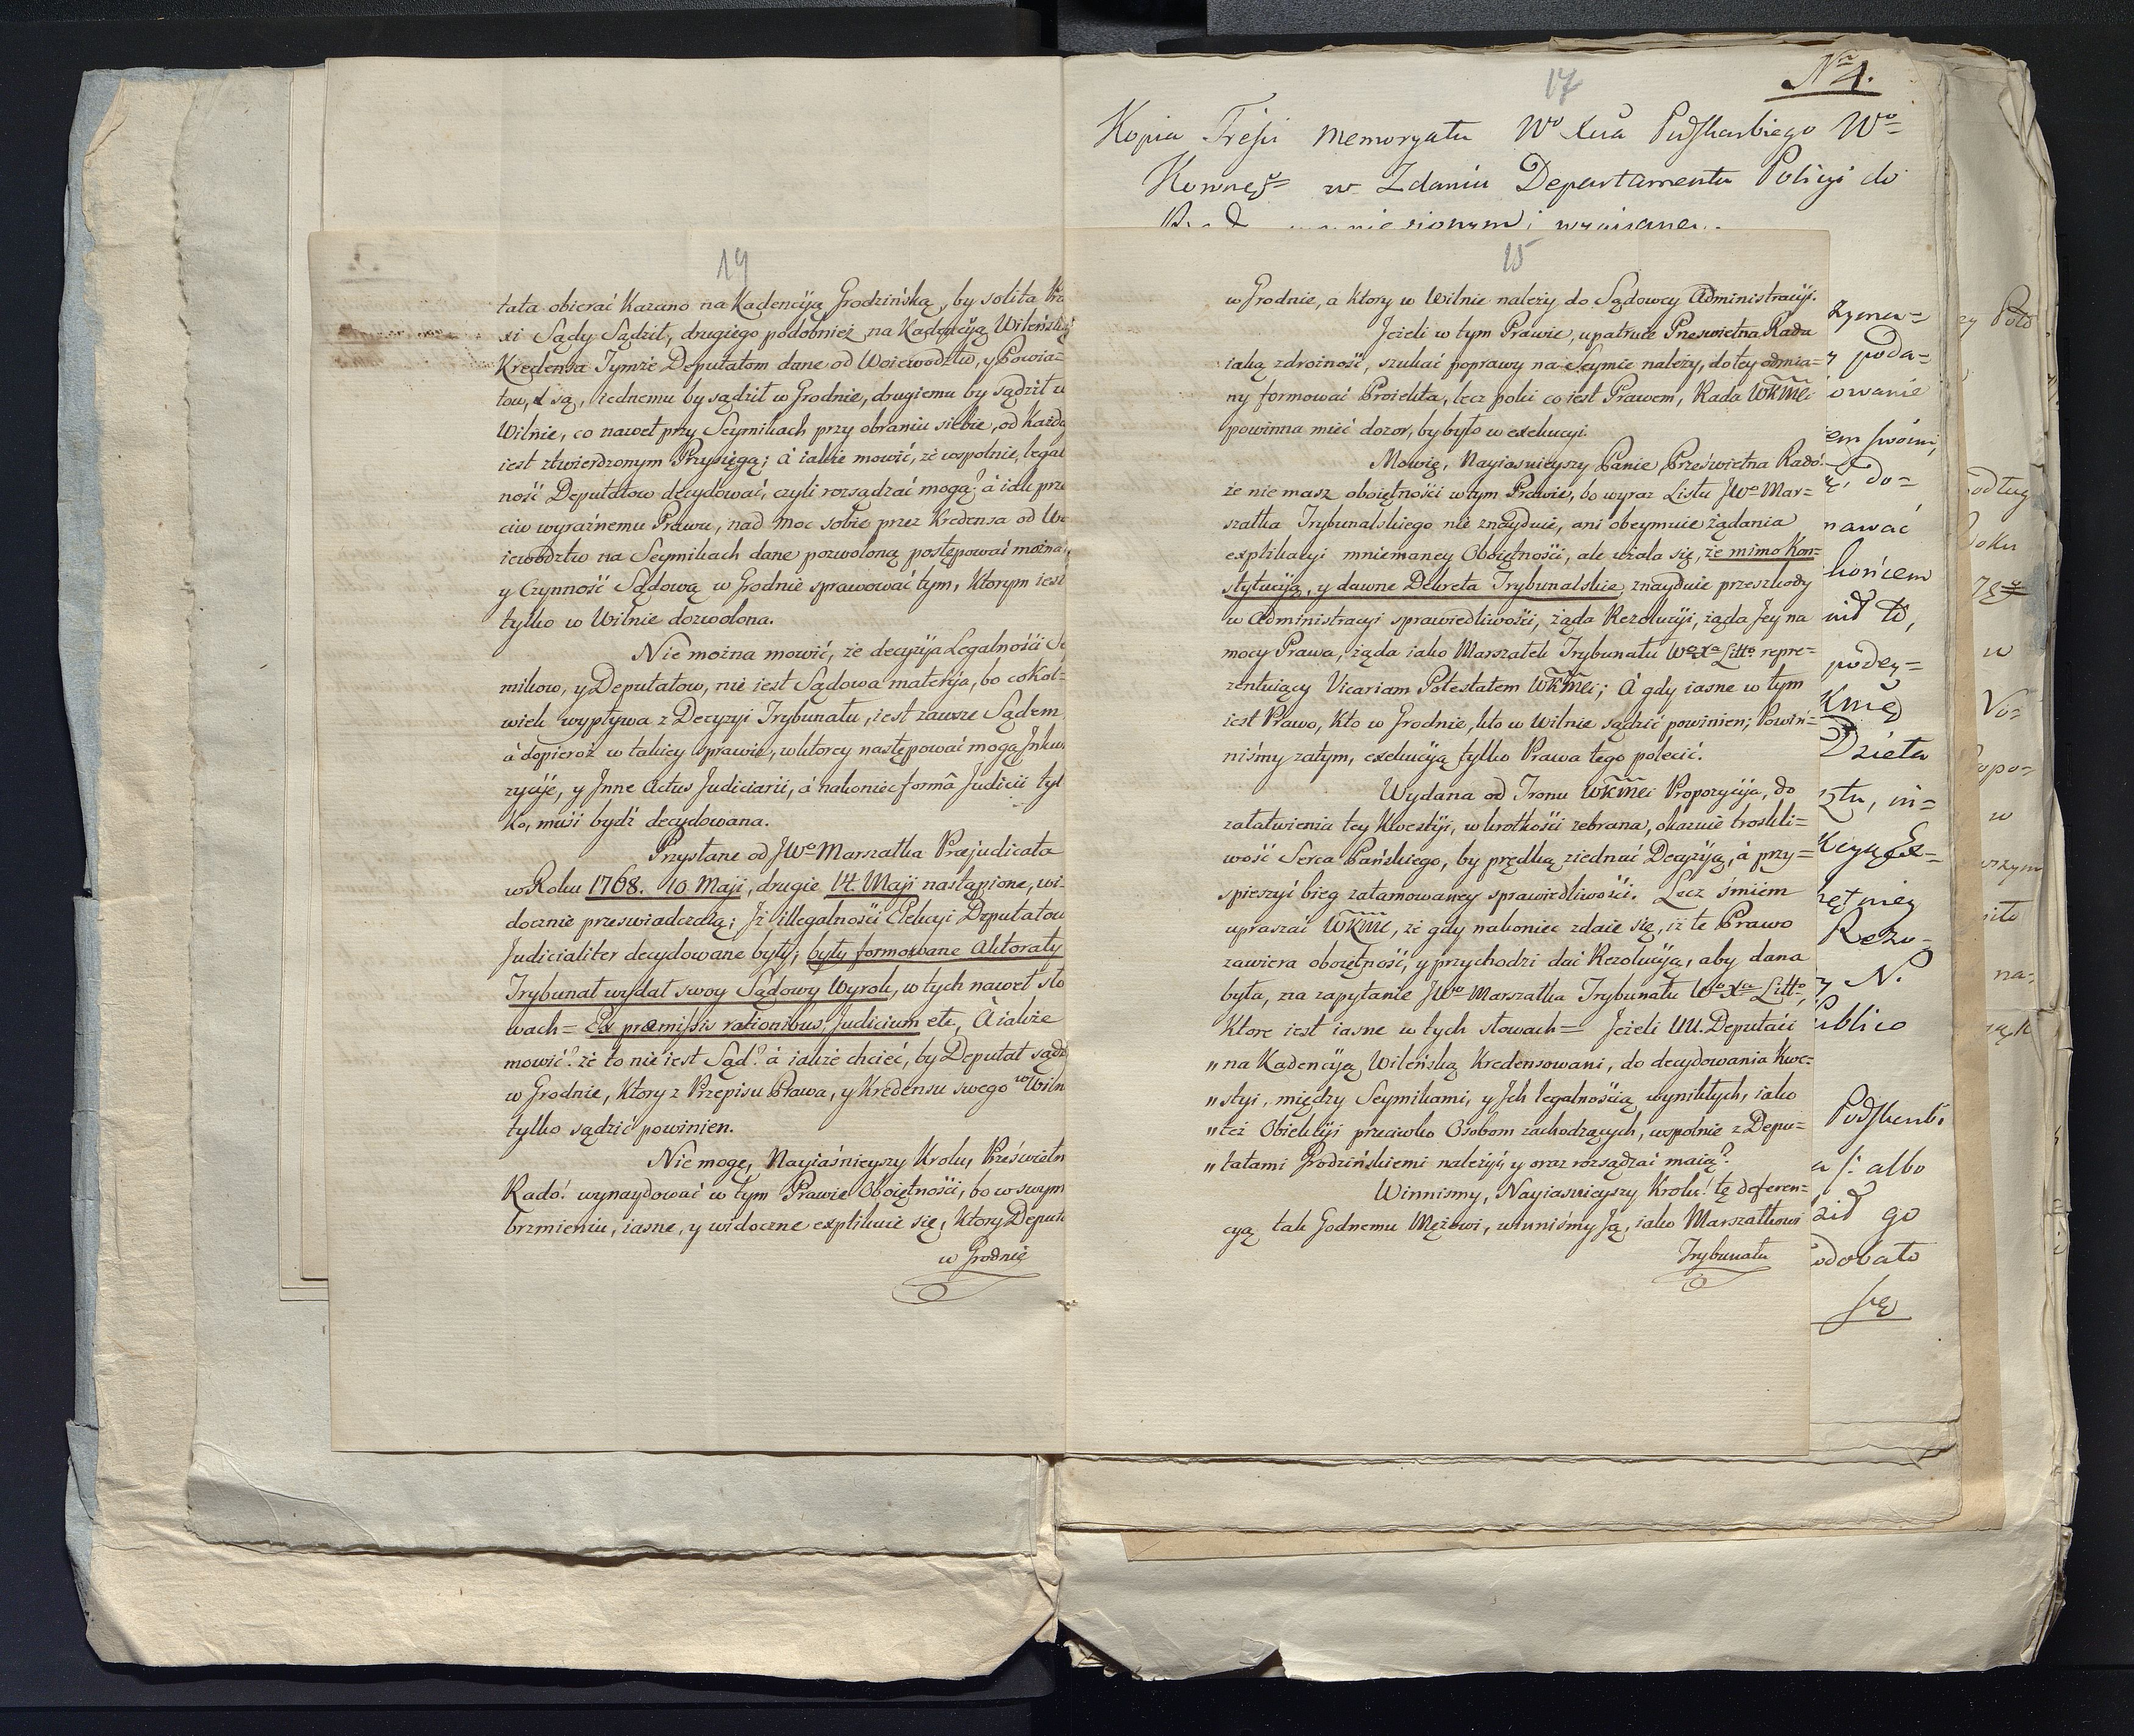 14
tata obierać kazano na Kadencyią Grodzińską, by solita
xi Sądy Sądził, drugiego podobnież na Kadencyią Wileńską
Kredensa Tymże Deputatom dane od Woiewodztw, y Powia=
tow, są, iednemu by sądził w Grodnie, drugiemu by sądził w
Wilnie, co nawet przy Seymikach przy obraniu siebie, od Każdo
iest ztwierdzonym Przysięgą; á iakże mowić, że wspolnie, legal
ność Deputatow decydować, czyli rozsądzać mogą? á iak prze
ciw wyraźnemu Prawu, nad moc sobie przez Kredensa od Wo
iewodztw na Seymikach dane pozwoloną postępować można,
y Czynność Sądową w Grodnie sprawować tym, Ktorym iest
tylko w Wilnie dozwolona.
Nie można mowić, że decyzyia Legalnośći Se
mikow, y Deputatow, nie iest Sądowa materyia, bo cokol=
wiek wypływa z Decyzyi Trybunału, iest zawsze Sądem
á dopieroż w takiey sprawie, w ktorey następować mogą Inkwi
zycyie, y Inne Actus Judiciarii, á nakoniec formâ Judicii tyl
ko, muśi bydź decydowana.
Przysłane od JWo Marszałka Præjudicata
w Roku 1768. 10 Maji, drugie 14. Maji nastąpione, wi=
docznie preswiadczaią; Jż illegalnośći Elekcyi Deputatow
Judicialiter decydowane były, były formowane Aktoraty
Trybunał wydał swoy Sądowy Wyrok, w tych nawet sło
wach= Ex præmissis rationibus, Judicium etc, À iakże
mowić? że to nie iest Sąd? á iakże chcieć, by Deputat sądz
w Grodnie, Ktory z Przepisu Prawa, y Kredensu swego w Wiln
tylko sądzić powinien.
Nie mogę, Nayiaśnieyszy Krolu, Prześwietn
Rado! wynaydować w tym Prawie Oboiętnośći, bo w swym
brzmieniu, iasne, y widoczne explikuie się, Ktory Deputa
w Grodnie
17
Nro 4.
Kopia Treści Memoryału Wo Xcia Podskarbiego Wo=
Koronneg= w Zdaniu Departamentu Policyi do
15
w Grodnie, a ktory w Wilnie należy do Sądowey Administracyi.
Jeżeli w tym Prawie, upatruie Prześwietna Rada
iaką zdrożność, szukać poprawy na Seymie należy, do tey odmia=
ny formować Proiekta, lecz poki co iest Prawem, Rada WKMci
powinna mieć dozor, by było w exekucyi.
Mowię, Nayiasnieyszy Panie Prześwietna Rado!
że nie masz oboiętnośći w tym Prawie, bo wyraz Listu JWo Mar=
szałka Trybunalskiego nie znayduie, ani obeymuie żądania
explikacyi mniemaney Oboiętności, ale użala się, że mimo Kon=
stytucyią, y dawne Dekreta Trybunalskie, znayduie przeszkody
w Administracyi sprawiedliwości, żąda Rezolucyi, żąda Jey na
mocy Prawa, żąda iako Marszałek Trybunału Wo Xa Litto repre=
zentuiący Vicariam Potestatem WKMci; À gdy iasne w tym
iest Prawo, Kto w Grodnie, kto w Wilnie sądzić powinien; Powin=
niśmy zatym, exekucyią tylko Prawa tego polecić.
Wydana od Tronu WKMci Propozycyia, do
załatwienia tey Kwestyi, w krotkośći zebrana, okazuie troskli=
wość Serca Pańskiego, by prędką ziednać Decyzyią, á przy=
spieszyć bieg zatamowaney sprawiedliwośći. Lecz śmiem
upraszać WKMci, że gdy nakoniec zdaie się, iż te Prawo
zawiera oboiętność, y przychodzi dać Rezolucyią, aby dana
była, na zapytanie JWo Marszałka Trybunału Wo Xa Litto,
Ktore iest iasne w tych słowach= Jeżeli UU. Deputaći
„ na Kadencyią Wileńską Kredensowani, do decydowania Kwe=
„ styi, między Seymikami, y Ich legalnośćią wynikłych, iako
„ też Obiekcyi przeciwko Osobom zachodzących, wspolnie z Depu=
„ tatami Grodzińskiemi należyć, y oraz rozsądzać maią?
Winnismy, Nayiasnieyszy Krolu! tę deferen=
cyą tak Godnemu Mężowi, winniśmy Ją, iako Marszałkowi
Trybunału
poda=
owanie
do=
nawać
końcem
podey=
Dzieła
Rezo=
y N.
ublico
Podskarbi
albo
go
się
w
w
na=